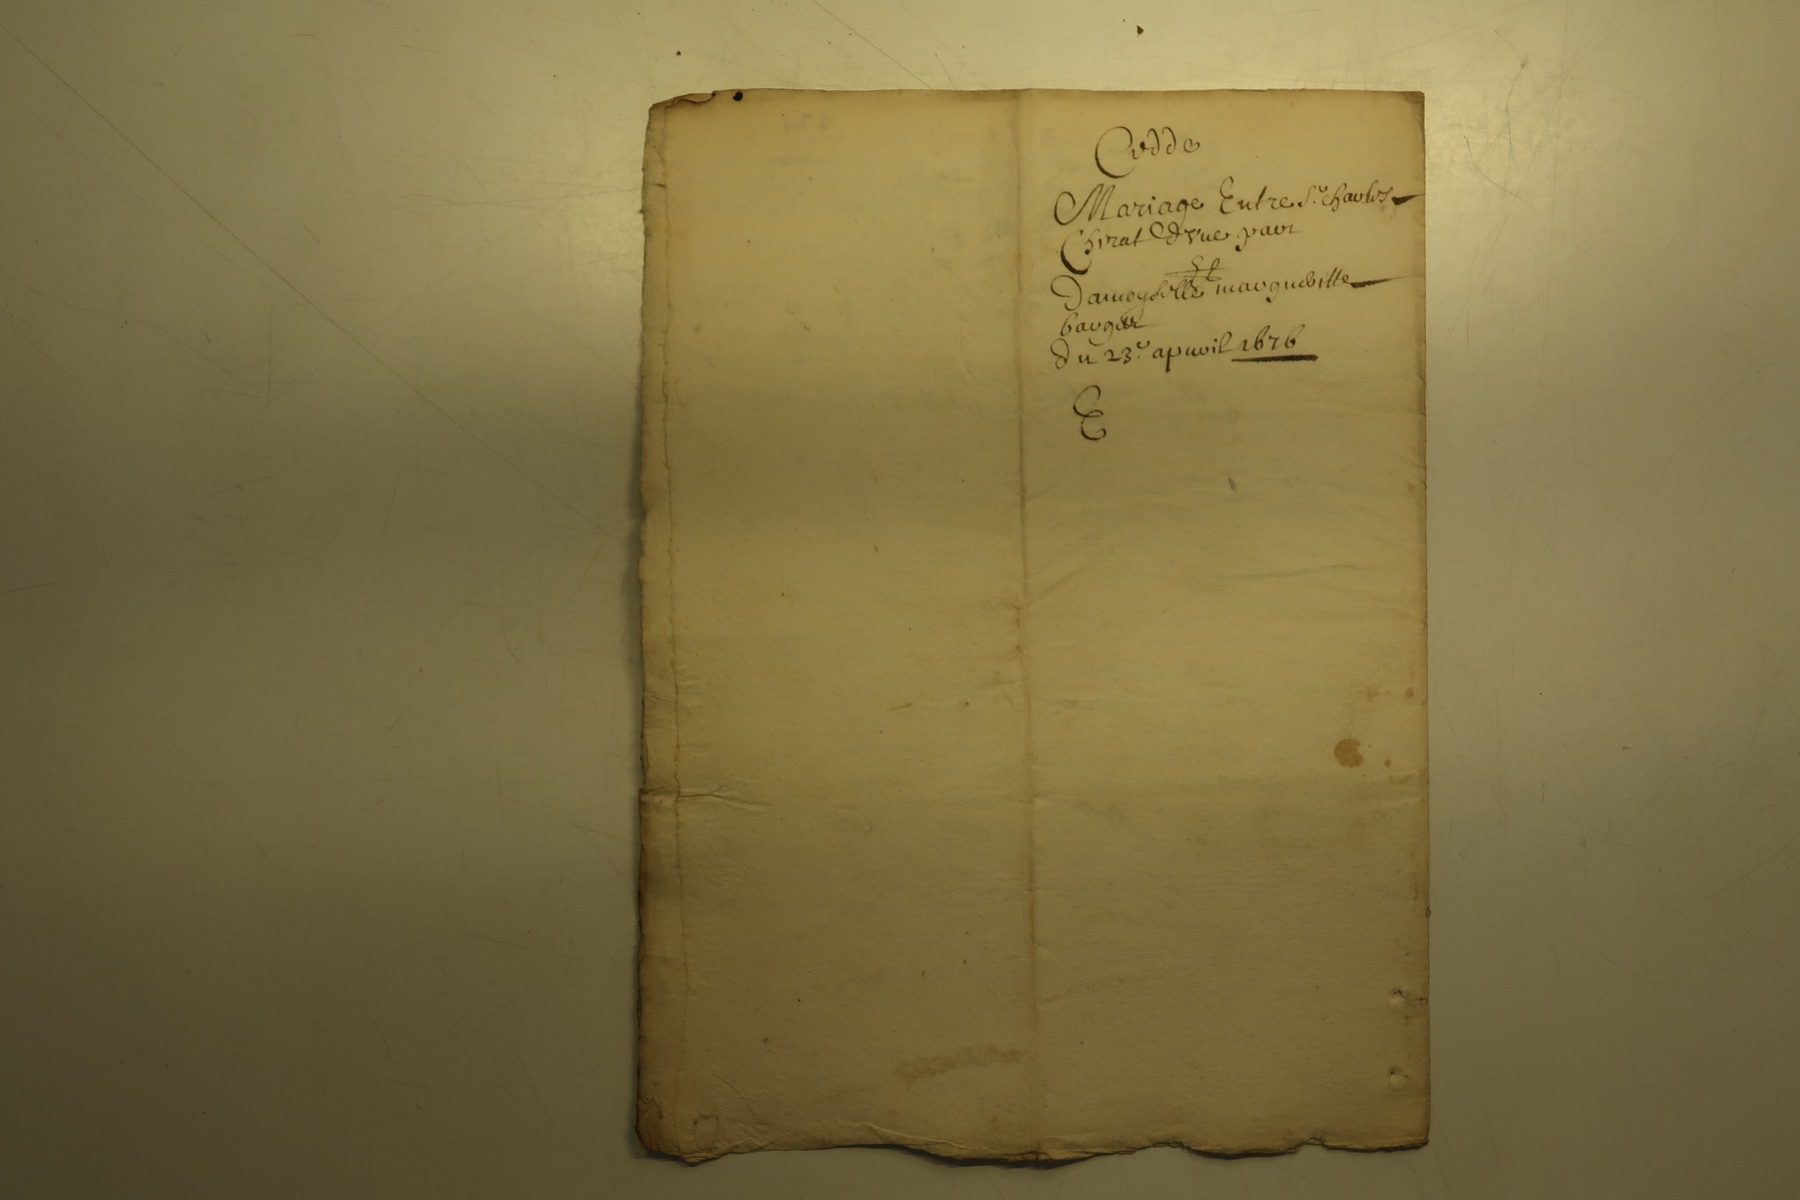 Cedde
Mariage Entre Sr. charles
Chirat d'vne part
Et
Damoyselle margueritte
bauger
du 23e. apuril 1676
E